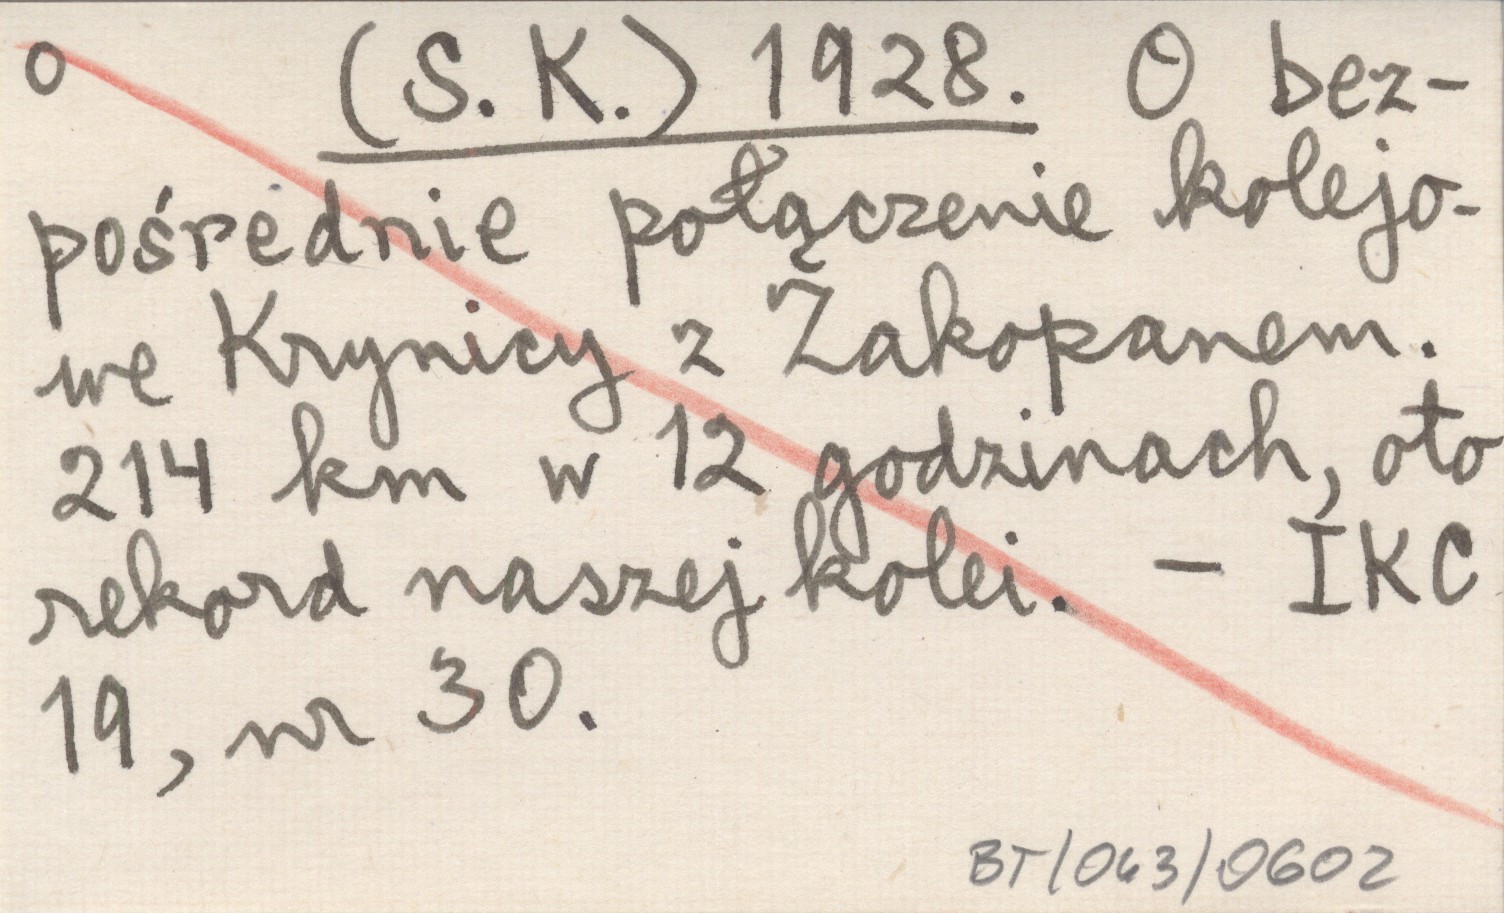 o (S. K.) 1928. O bez-
pośrednie połączenie kolejo-
we Krynicy z Zakopanem.
214 km w 12 godzinach, oto
rekord naszej kolei. — IKC
19, nr 30.
BT/043/0602